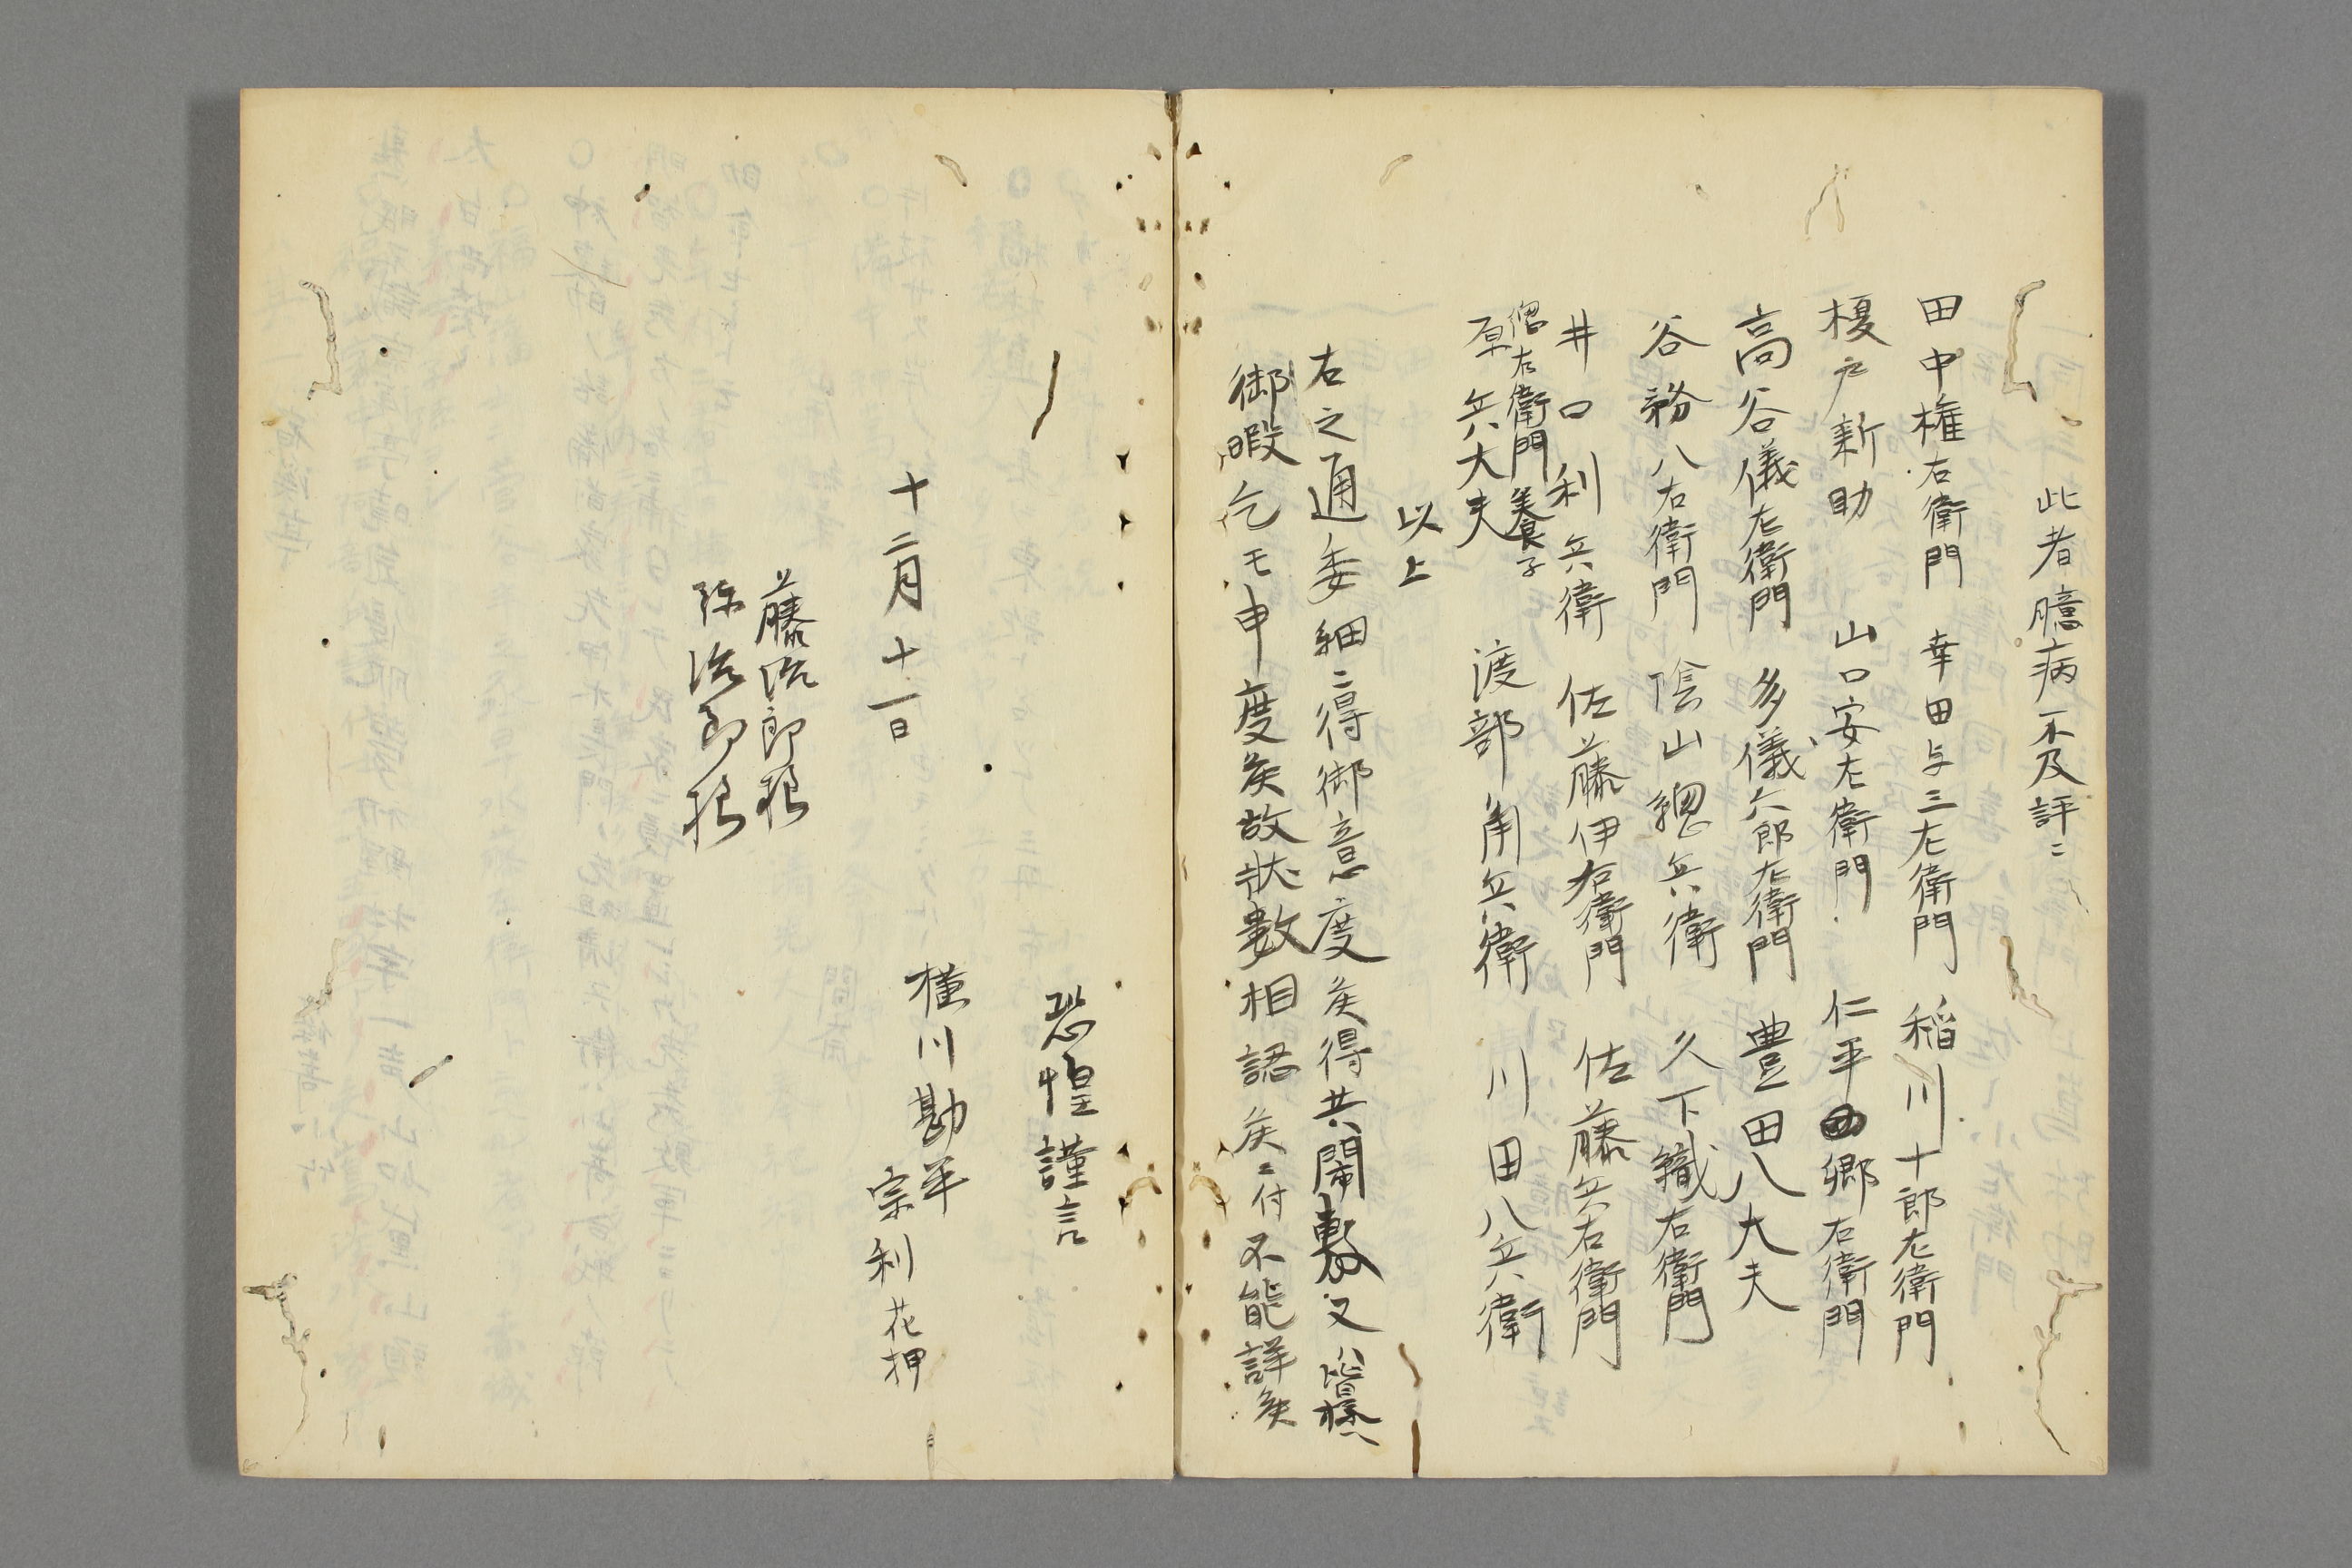 此者臆病不及評ニ
田中権右衛門　幸田与三左衛門　稲川十郎左衛門
榎戸新助　山口安左衛門　仁平郷右衛門
高谷儀左衛門　多儀六郎左衛門　豊田八大夫
谷務八右衛門　陰山総兵衛　久下織右衛門
井口利兵衛　佐藤伊右衛門　佐藤兵右衛門
偬右衛門養子
原兵大夫　渡部角兵衛　川田八兵衛
以上
右之通委細ニ得御意度候得共閙敷又ハ皆様ヘ
御暇乞モ申度候故状数相認候ニ付不能詳候
恐惶謹言
十二月十一日
横川勘平
宗利花押
藤治郎様
弥治郎様